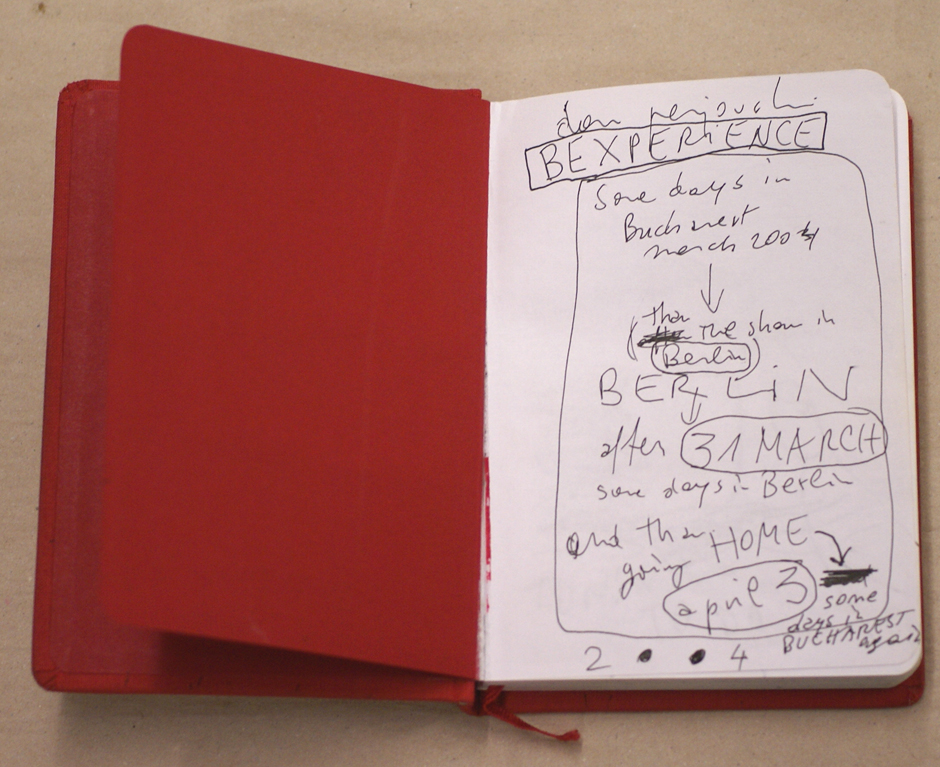 dan perjovschi
BEXPERIENCE
Some days in
Bucharest
march 2004
(than
the show in
Berlin)
BERLIN
after 31 MARCH
some days in Berlin
and than HOME
going
april 3
some
days in
BUCHAREST
again
2 • • 4